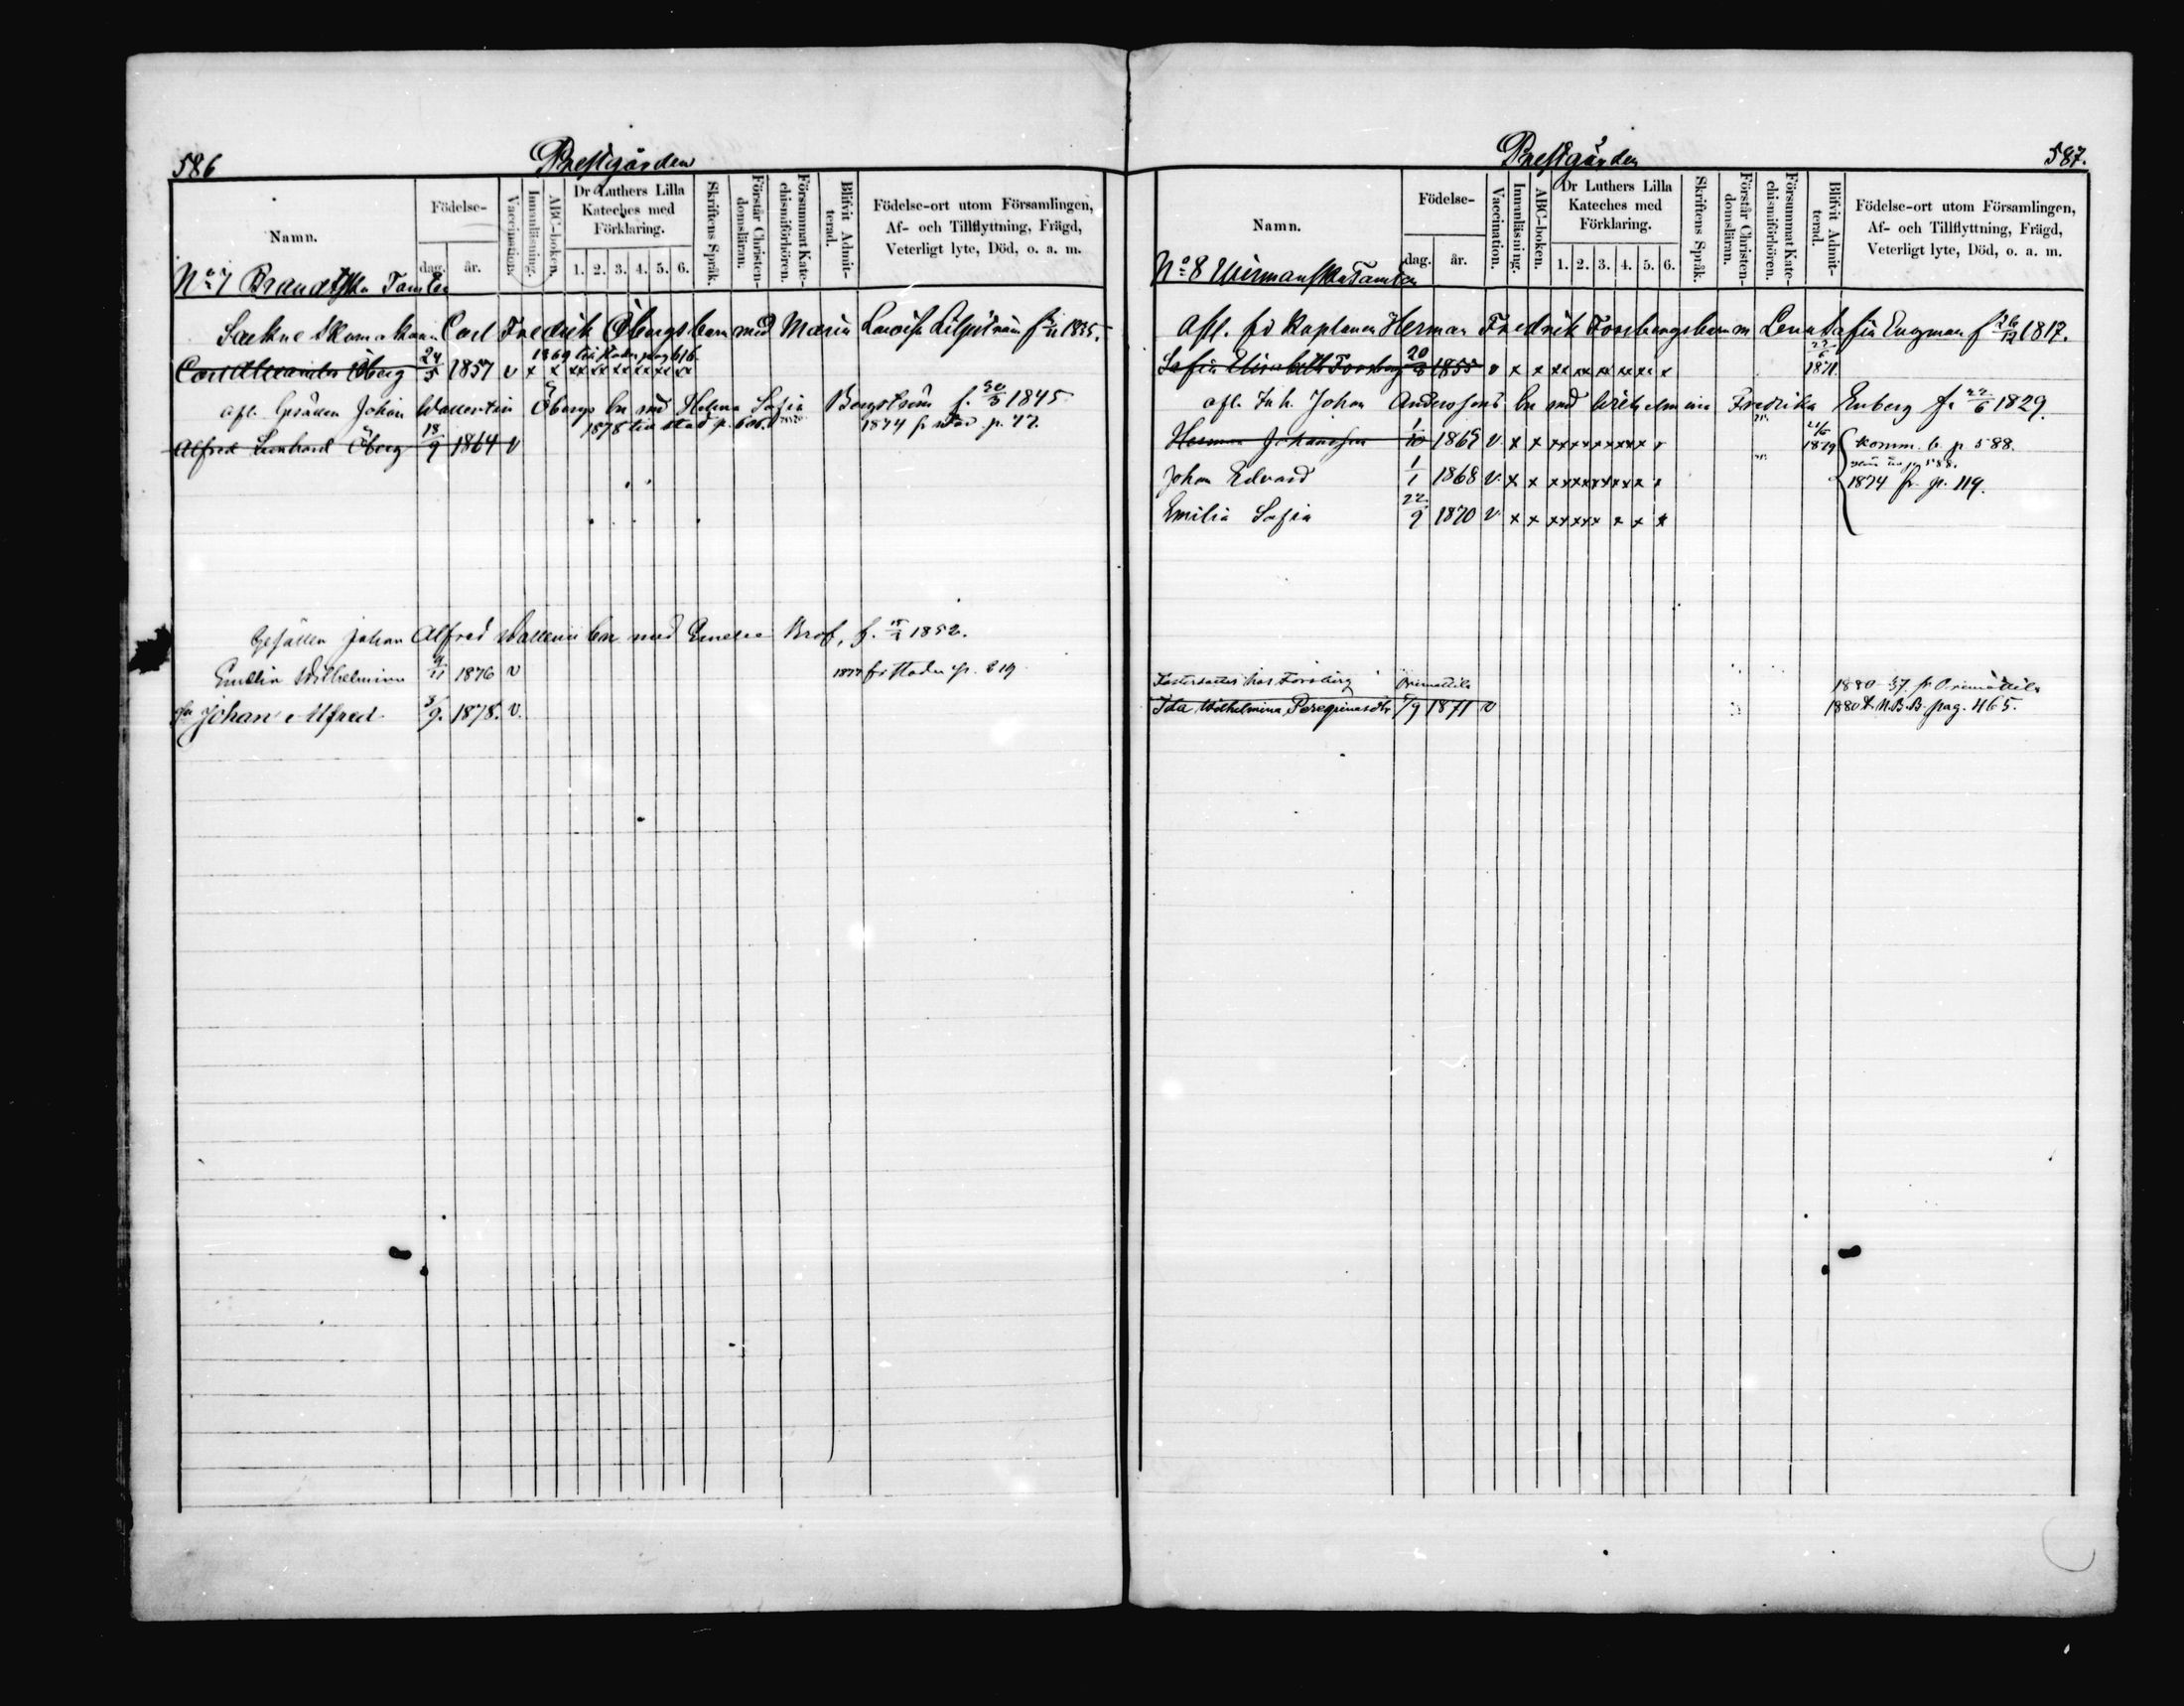 586
Prestgården
Namn.
Födelse-
dag.
år.
Vaccination.
Innanläsning.
ABC-boken.
Dr Luthers Lilla
Kateches med
Förklaring.
1. 2. 3. 4. 5. 6.
Skriftens Språk.
Förstår Christen-
domsläran.
Försummat Kate-
chismiförhören.
Blifvit Admit-
terad.
Födelse-ort utom Församlingen,
Af- och Tillflyttning, Frägd,
Veterligt lyte, Död, o. a. m.
No 7 Brandtska Tomten
Carl Fredrik Öbergs barn med Maria Lovisa 1835.
1869 till pag 616
Carl Alexander Öberg 24/5 1857 v x x xx xx xx xx xx xx
afl. Johan Wallentin Öbergs bn md Helena Sofia Bergström f. 1845
1878 till stad p. 606. 1874 p. 77.
Alfred Leonhard Öberg 18/9 1864 v
Gesällen Johan Alfred bn med f. 1852.
Emilia Wilhelmina 1876 v 1877 fr staden p. 219
Johan Alfred 3/9. 1878. v.
Prestgården
587.
Namn.
Födelse-
dag.
år.
Vaccination.
Innanläsning.
ABC-boken.
Dr Luthers Lilla
Kateches med
Förklaring.
1. 2. 3. 4. 5. 6.
Skriftens Språk.
Förstår Christen-
domsläran.
Försummat Kate-
chismiförhören.
Blifvit Admit-
terad.
Födelse-ort utom Församlingen,
Af- och Tillflyttning, Frägd,
Veterligt lyte, Död, o. a. m.
No 8 Tomten
Afl. Kaplanen Herman Fredrik Forsbergs barn m Lena Sofia Engman f 26/12 1817.
Sofia Elisabeth Forsberg 1855 v x x xx xx xx xx xx x 1871.
afl. Inh. Johan Anderssons bn md Wilhelmina Fredrika Enberg f. 22/6 1829.
Herman Johansson 1/10 1865 v. x x xx xx xx xx x x 1879 komm. b. p 588.
p 588.
Johan Edvard 1/1 1868 v. x x xx xx xx xx x x 1874 fr. p. 119.
Emilia Sofia 22/9 1870 v x x xx xx x x x x
hos Forsberg Orimattila 1880 37 fr Orimattila
Ida Wilhelmina Peregrinasdtr 5/9 1871 v 1880 t. N.B.B. pag. 465.